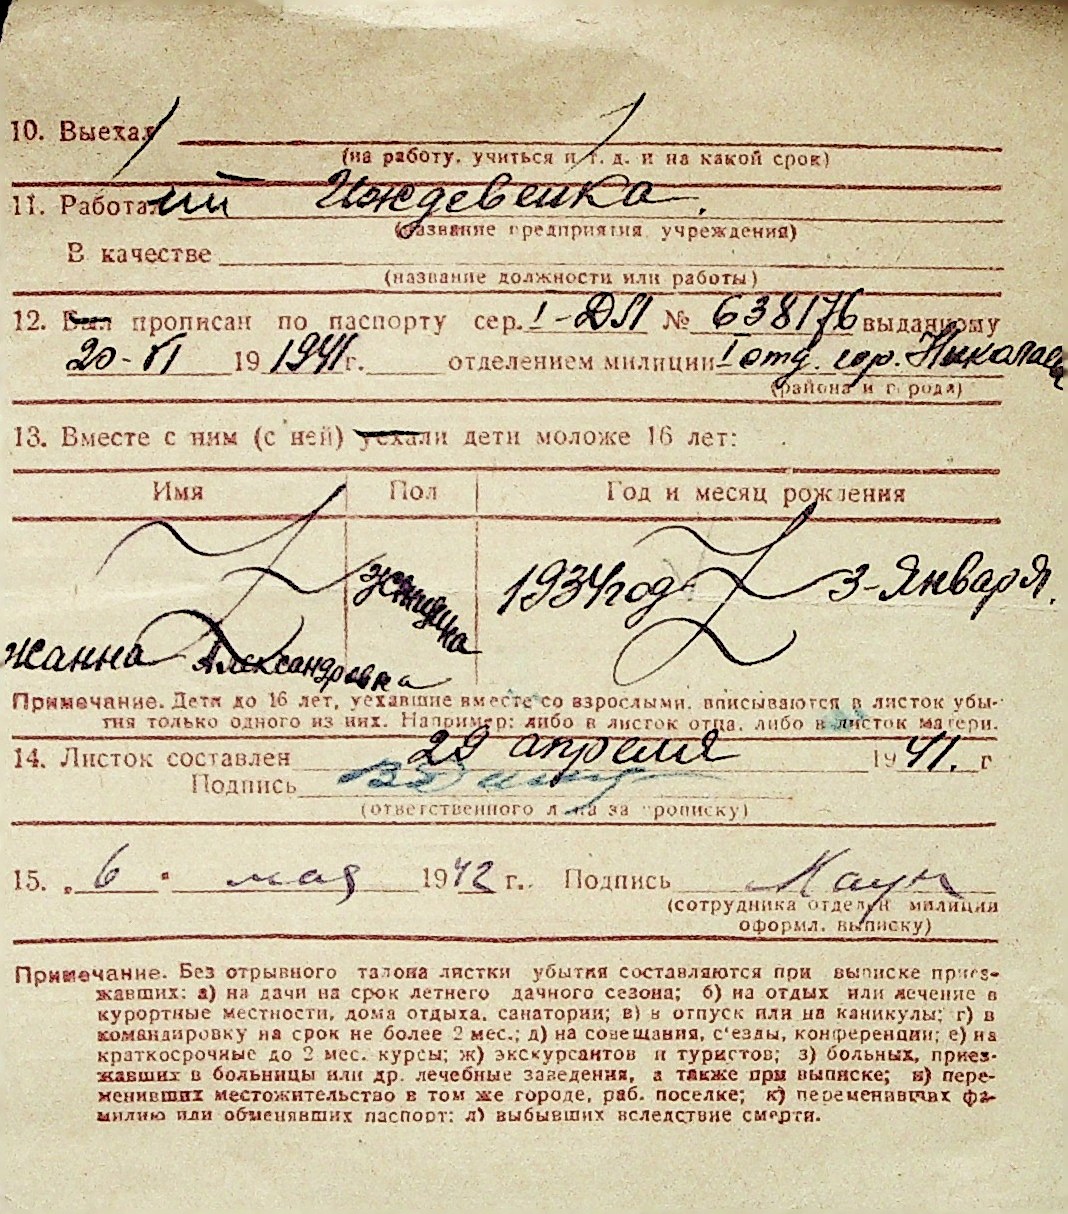 10. Выехал
(на работу, учиться и т. д. и на какой срок)
11. Работал Иждевенка.
(название предприятия, учреждения)
В качестве
(название должности или работы)
12. Был прописан по паспорту сер. I-ДЛ № 638176 выданному
20-VI 19 1941 г. отделением милиции I отд. гор. Николаев
(района и города)
13. Вместе с ним (с ней) уехали дети моложе 16 лет:
Имя Пол Год и месяц рождения
1934 год 3-Января.
Жанна Александровна
Примечание. Дети до 16 лет, уехавшие вместе со взрослыми, вписываются в листок убы-
тия только одного из них. Например: либо в листок отца, либо в листок матери.
14. Листок составлен 29 апреля 1941. г
Подпись
(ответственного лица за прописку)
15. „ 6 " мая 1942 г. Подпись
(сотрудника отделен. милиции
оформл. выписку)
Примечание. Без отрывного талона листки убытия составляются при выписке приез-
жавших: а) на дачи на срок летнего дачного сезона; б) на отдых или лечение в
курортные местности, дома отдыха, санатории; в) в отпуск или на каникулы; г) в
командировку на срок не более 2 мес.; д) на совещания, с'езды, конференции; е) на
краткосрочные до 2 мес. курсы; ж) экскурсантов и туристов; з) больных, приез-
жавших в больницы или др. лечебные заведения, а также при выписке; и) пере-
менивших местожительство в том же городе, раб. поселке; к) переменивших фа-
милию или обменявших паспорт; л) выбывших вследствие смерти.